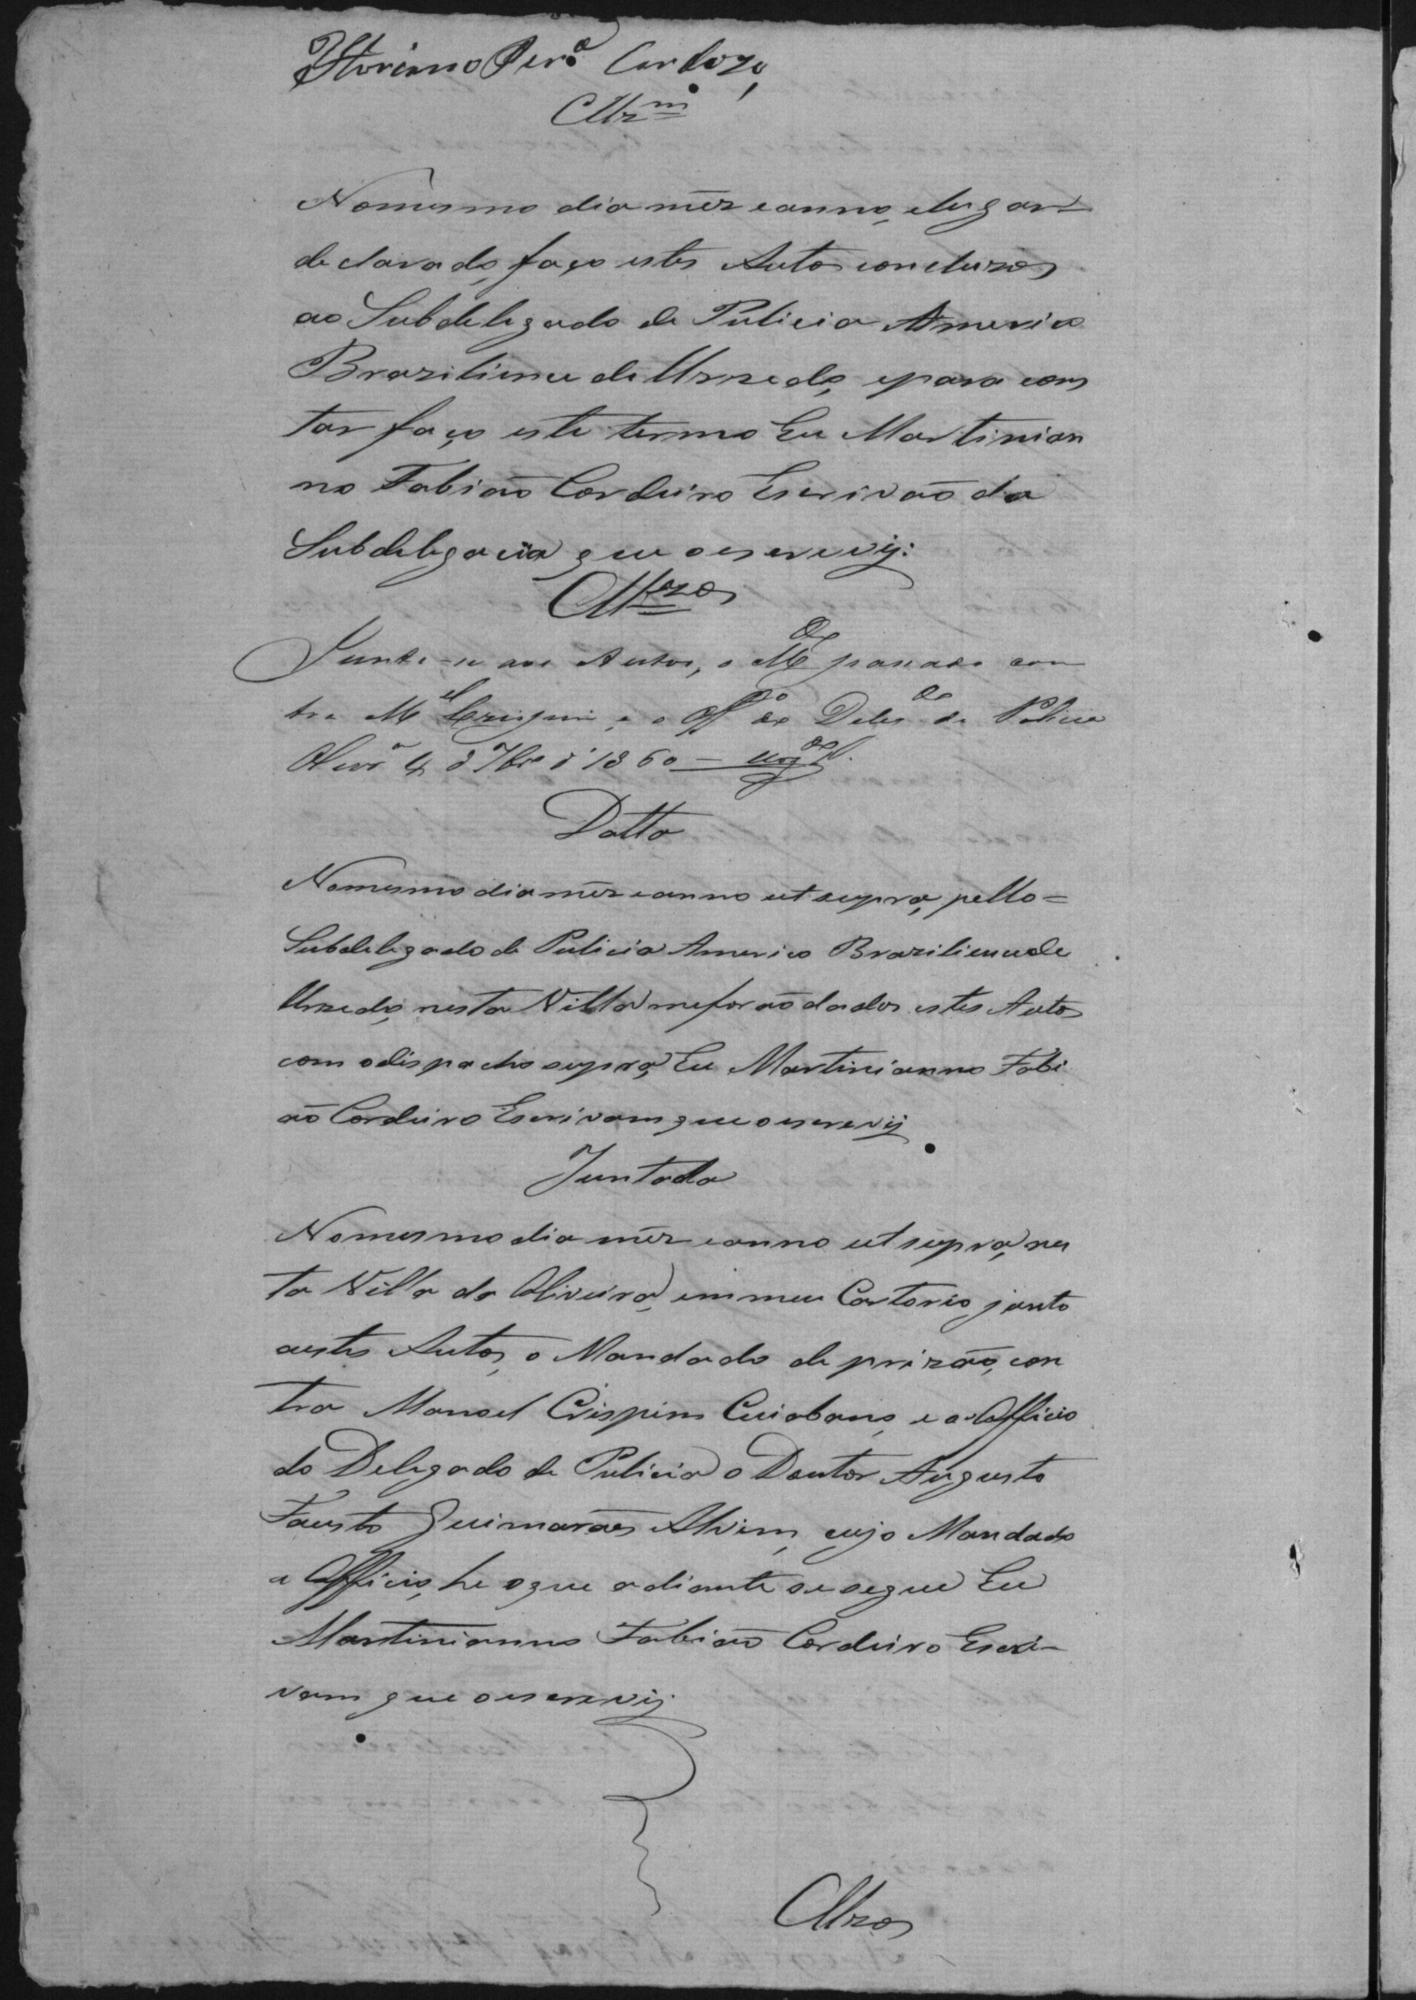 Floriano Per.ª Cardozo,
Nomesmo dia mêz eanno, elugar
declarado, faço estes Autos concluzos
ao Subdelegado de Pulicia Americo
Braziliense de Urzedo, epara cons
tar faço este termo Eu Martinian
no Fabiaõ Cordeiro Escrivaõ da
Subdelegacia que oescrevij:
Clzos
Junte-se aos Autos, o M.do passado con
tra M.el Crispim, e o Off.o do Deleg.do de Policia
Olivr.a 4 d 7br.o d' 1860 —
Datta
Nomesmo dia mêz eanno ut supra, pello=
Subdelegado de Pulicia Americo Braziliense de
Urzedo, nesta Villa meforaõ dados estes Autos
com odispacho supra, Eu Martinianno Fabi
aõ Cordeiro Escrivam que oescrevij
Juntada
Nomesmo dia mêz eanno ut supra, nes
ta Villa da Oliveira, emmeu Cartorio junto
aestes Autos, o Mandado de prizaõ, con
tra Manoel Crispim Cuiabano, e o Officio
do Delegado de Pulicia o Doutor Augusto
Fausto Guimarães Alvim, cujo Mandado
e Officio, he oque adiante se segue Eu
Martinianno Fabiaõ Cordeiro Escri-
vam que oescrevij
Clzos